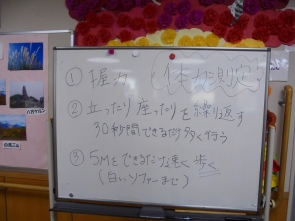 体力測定
① 握力
② 立ったり座ったりを繰り返す
30秒間できるだけ多く行う
③ 5Mをできるだけ速く歩く
(白いソファーまで)